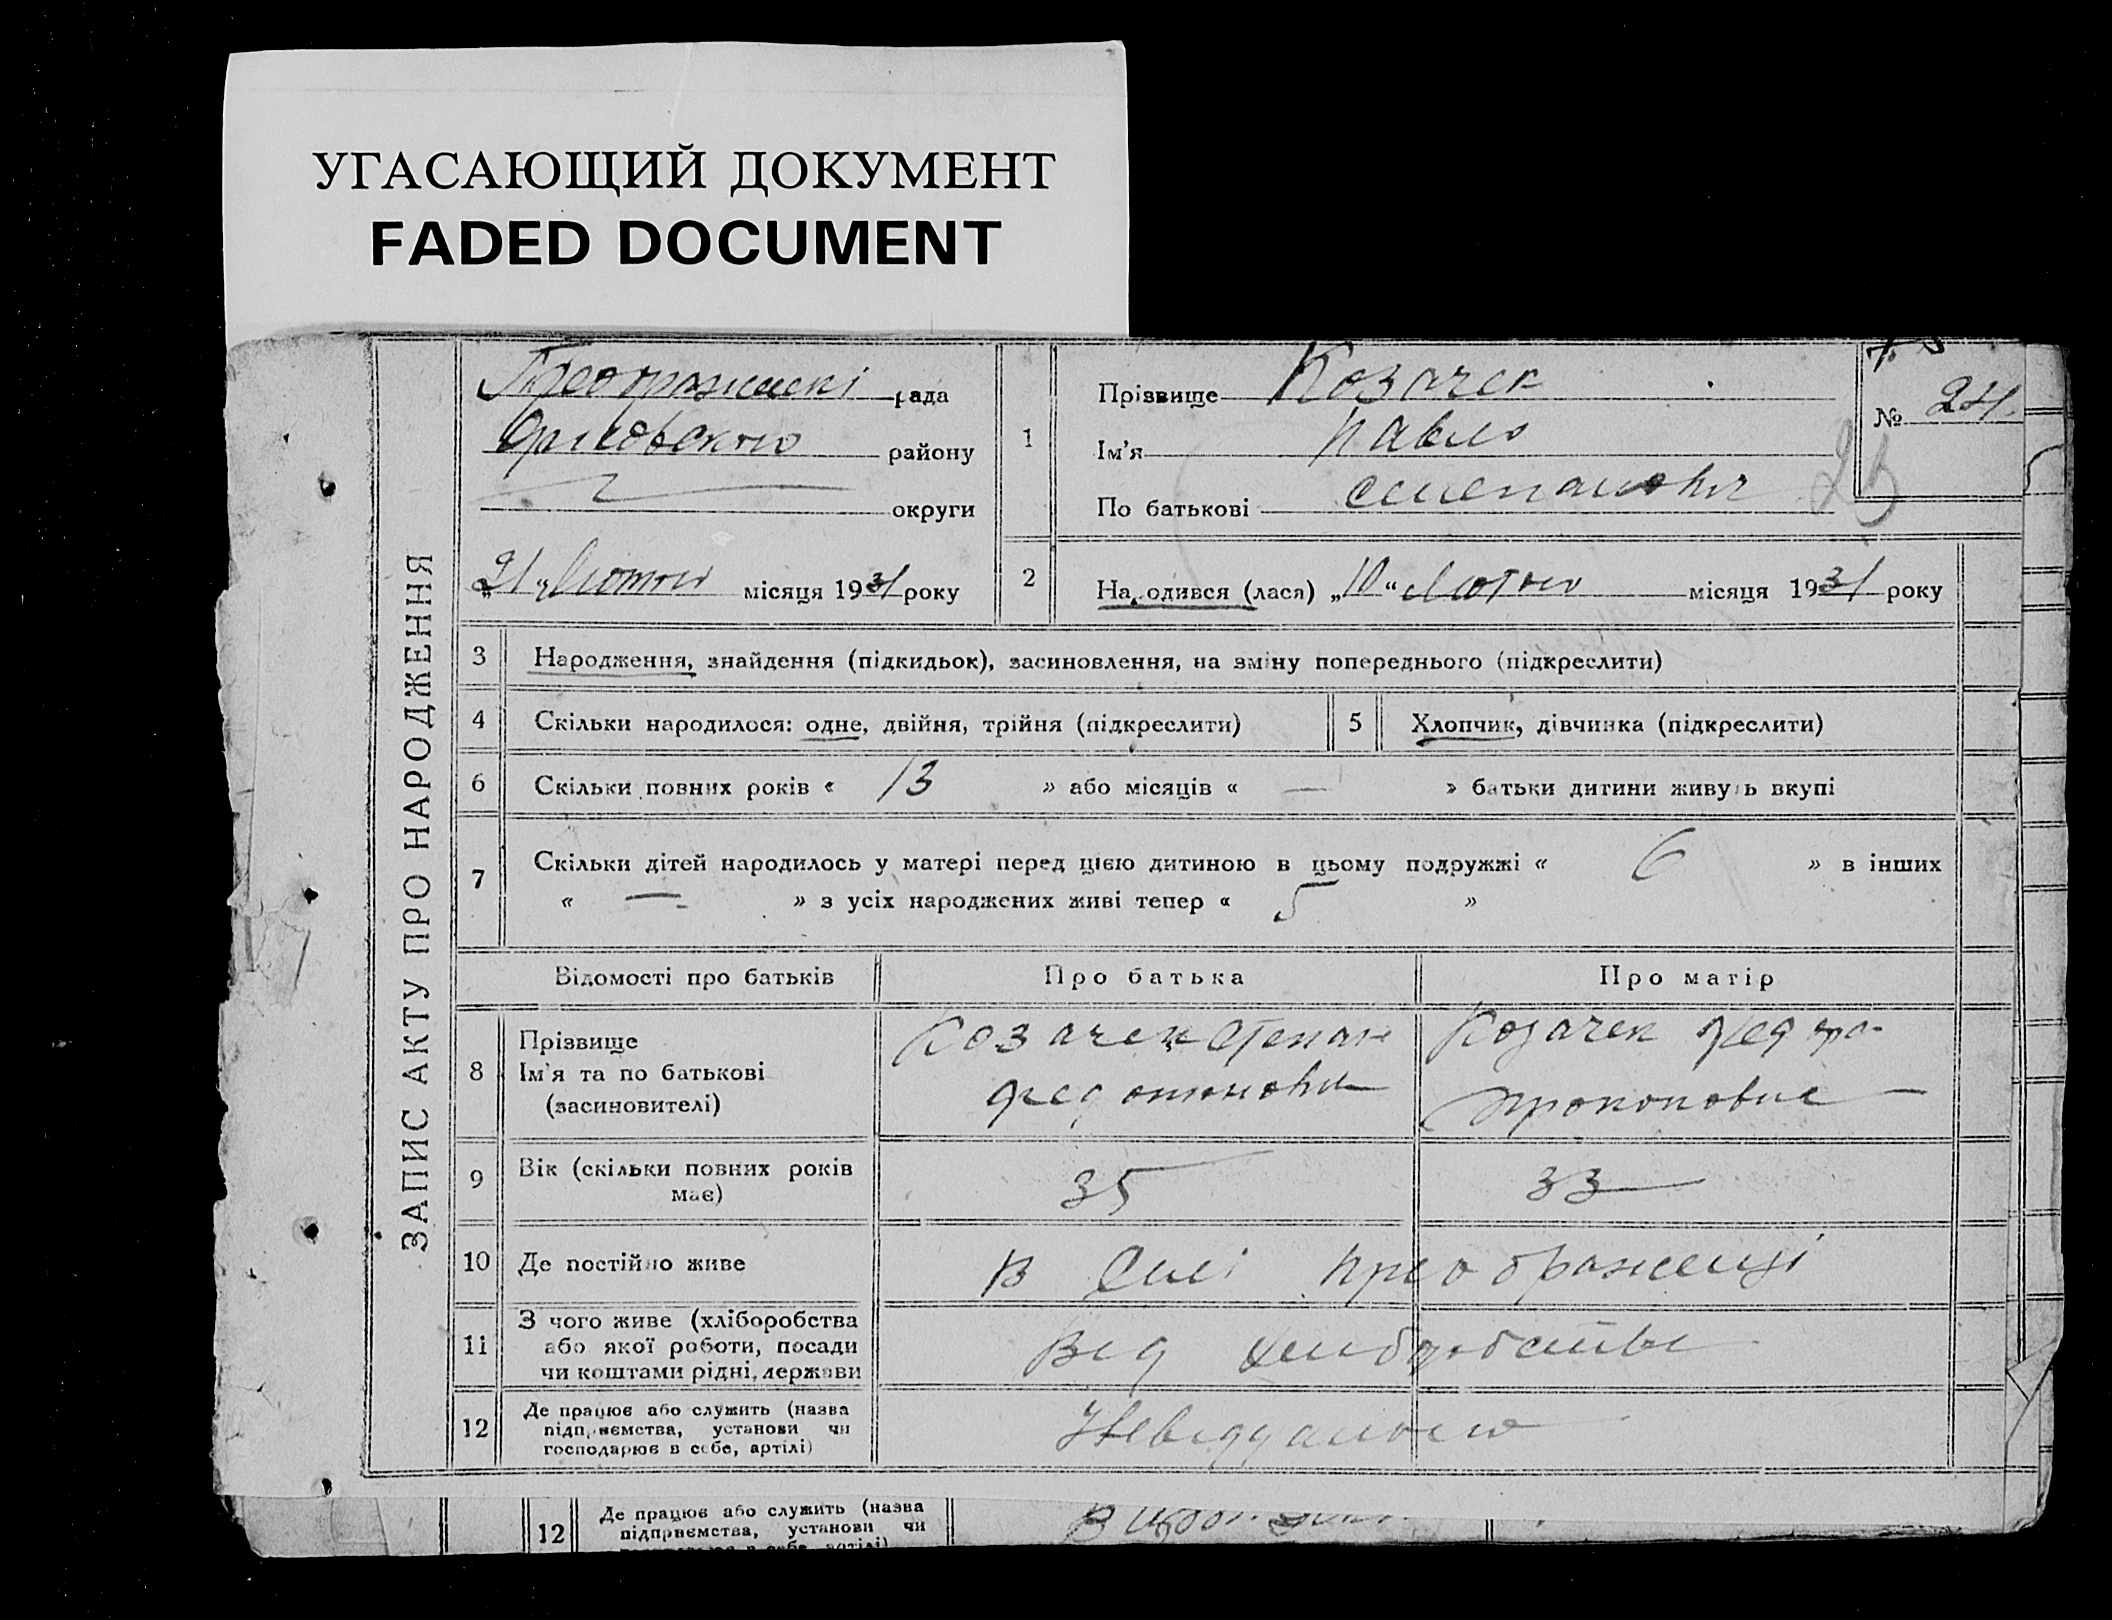 УГАСАЮЩИЙ ДОКУМЕНТ
FADED DOCUMENT
ЗАПИС АКТУ ПРО НАРОДЖЕННЯ
рада
району
округи
„21“ Лютого місяця 1931 року
1
Прізвище Козачек
Ім'я Павло
По батькові Степанович
№ 24
23
2
Народився (лася) „10“ Лютого місяця 1931 року
3 Народження, знайдення (підкидьок), засиновлення, на зміну попереднього (підкреслити)
4 Скільки народилося: одне, двійня, трійня (підкреслити)
5 Хлопчик, дівчинка (підкреслити)
6 Скільки повних років « 13 » або місяців « — » батьки дитини живуть вкупі
7 Скільки дітей народилось у матері перед цією дитиною в цьому подружжі « 6 » в інших
« — » з усіх народжених живі тепер « 5 »
Відомості про батьків Про батька Про матір
8 Прізвище
Ім'я та по батькові
(засиновителі)
Козачек Степан
Козачек
9 Вік (скільки повних років
має)
35 33
10 Де постійно живе
В Селі Преображенці
11 З чого живе (хліборобства
або якої роботи, посади
чи коштами рідні, держави
Від
12 Де працює або служить (назва
підприємства, установи чи
господарює в себе, артілі)
12 Де працює або служить (назва
підприємства, установи чи